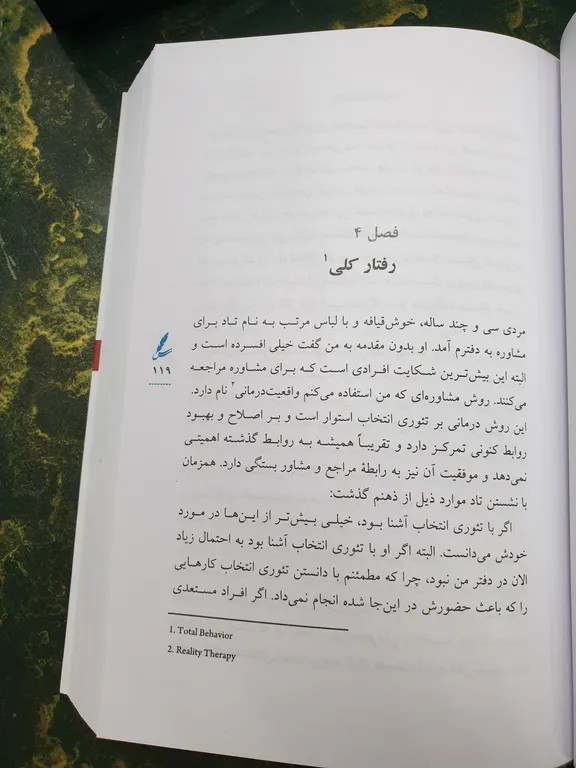 فصل ۴
رفتار کلی۱
مردی سی و چند ساله، خوش‌قیافه و با لباس مرتب به نام تاد برای
مشاوره به دفترم آمد. او بدون مقدمه به من گفت خیلی افسرده است و
البته این بیش‌ترین شکایت افرادی است که برای مشاوره مراجعه
می‌کنند. روش مشاوره‌ای که من استفاده می‌کنم واقعیت‌درمانی۲ نام دارد.
این روش درمانی بر تئوری انتخاب استوار است و بر اصلاح و بهبود
روابط کنونی تمرکز دارد و تقریباً همیشه به روابط گذشته اهمیتی
نمی‌دهد و موفقیت آن نیز به رابطهٔ مراجع و مشاور بستگی دارد. همزمان
با نشستن تاد موارد ذیل از ذهنم گذشت:
اگر با تئوری انتخاب آشنا بود، خیلی بیش‌تر از این‌ها در مورد
خودش می‌دانست. البته اگر او با تئوری انتخاب آشنا بود به احتمال زیاد
الان در دفتر من نبود، چرا که مطمئنم با دانستن تئوری انتخاب کارهایی
را که باعث حضورش در این‌جا شده انجام نمی‌داد. اگر افراد مستعدی
1. Total Behavior
2. Reality Therapy
۱۱۹